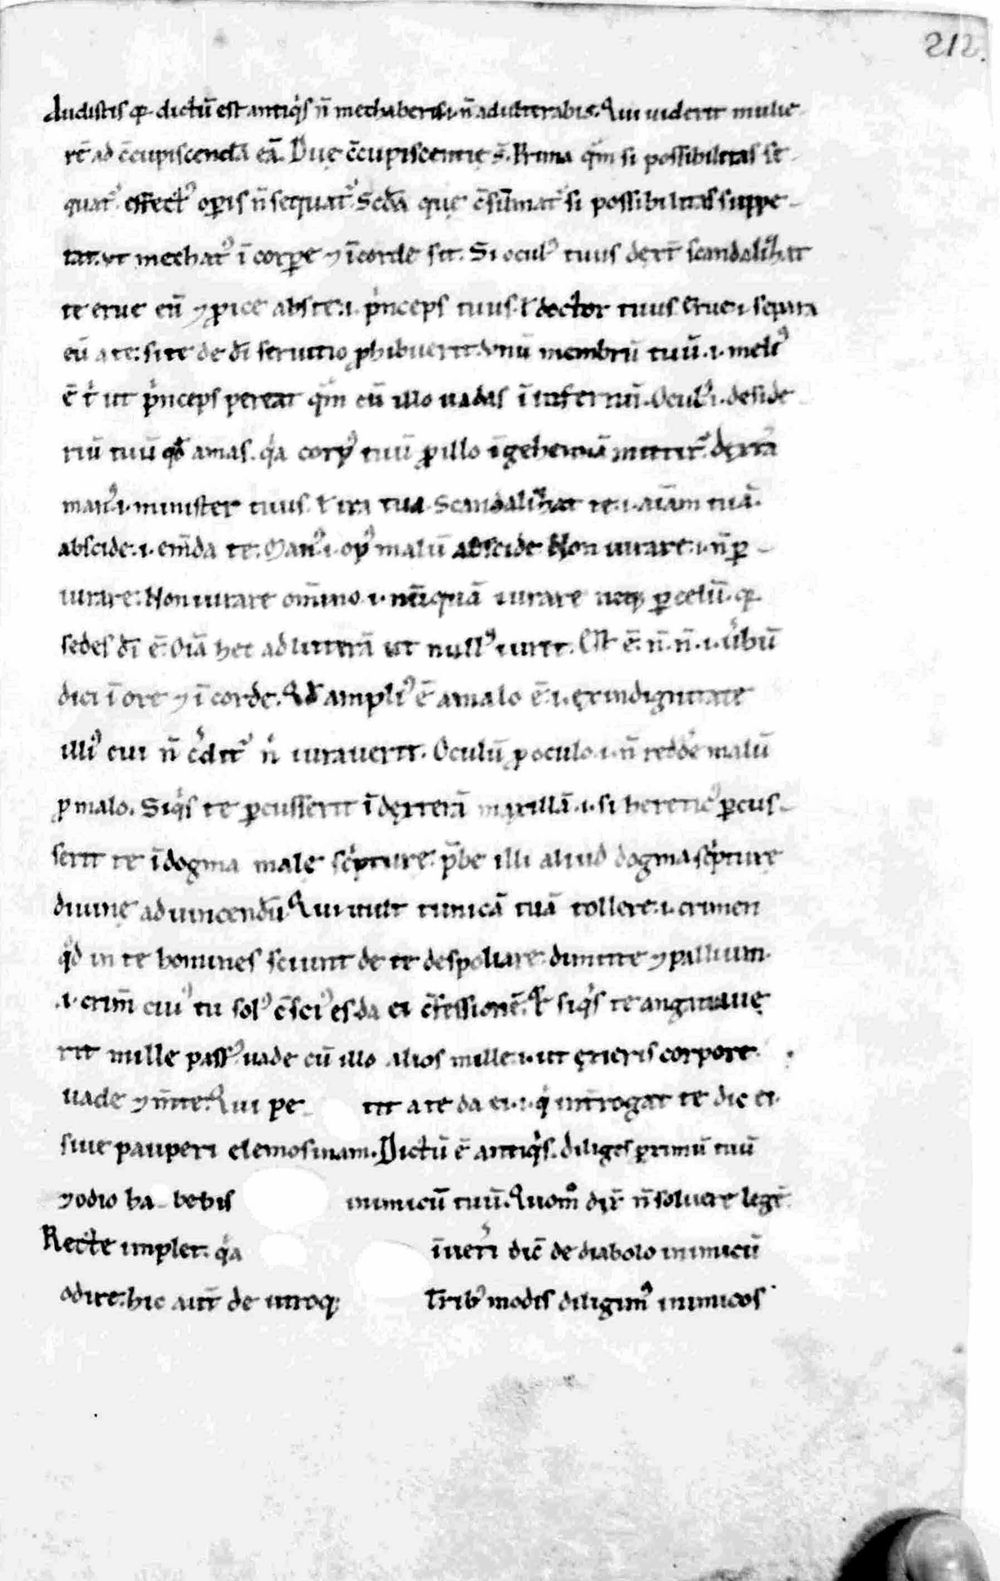 212.
Audistis q̄ dictū est antiq's n̄ mechaberis .i. n̄ adulterabis. Qui uiderit mulie-
rē ad c̄cupiscendā eā. Duę c̄cupiscentię s̄. Prima qm̄ si possibilitas se-
quat' effect' op̄is n̄ sequat'. Scda que c̄sūmat' si possibilitas suppe-
tat. ut mechat' ī corpe ⁊ ī corde sit. Si ocul' tuus dext̄ scandalizat
te erue eū ⁊ p̄ice abs te .i. p'nceps tuus ł doctor tuus. Erue .i. separa
eū a te. si te de dī seruitio p̄hibuerit. Vnū membrū tuū .i. meli'
ē t' ut p'nceps pereat qm̄ cū illo uadas ī infernū. Ocul' .i. deside-
riū tuū qđ amas. q'a corp' tuū p̄ illo ī gehennā mittit'. dęxt̄a
man' .i. minister tuus ł ira tua. Scandalizat te .i. aīam tuā.
abscide .i. em̄da te. Man' .i. op' malū abscide. Non iurare .i. n̄ p̄-
iurare. Non iurare om̄ino .i. nūquā iurare neq; p̄ celū. q̄
sedes dī ē. Oīa hec ad litterā ut null' iuret. Est ē. n̄. n̄ .i. u'bū
dici ī ore ⁊ ī corde. Qđ ampli' ē a malo ē .i. ex indignitate
illi' cui n̄ c'dit' n' iurauerit. Oculū p̄ oculo .i. n̄ redde malū
p̄ malo. Siq's te p̄cusserit ī dęxterā maxillā .i. si heretic' p̄cus-
serit te ī dogma male sc'pture. p̄be illi aliud dogma sc'pturę
diuinę ad uincendū. Qui uult tunicā tuā tollere .i. crimen
q'd in te homines sciunt de te despoliare. dimitte ⁊ pallium.
.i. crim̄ cui' tu sol' c̄sci' es. da ei c̄fessionē. Et siq's te angariauę
rit mille pass' uade cū illo alios mille .i. ut ceteris corpore.
uade ⁊ m̄te. Qui pe- tit a te da ei .i. q' int̄rogat te dic ei.
siue pauperi elemosinam. Dictū ē antiq's. diliges p̄ximū tuū
⁊ odio ha- bebis inimicū tuū. Quom̄ dix' n̄ soluere legē.
Recte implet. q'a ī ueri dic̄ de diabolo inimicū
odire. hic aut̄ de utroq; Trib' modis diligim' inimicos